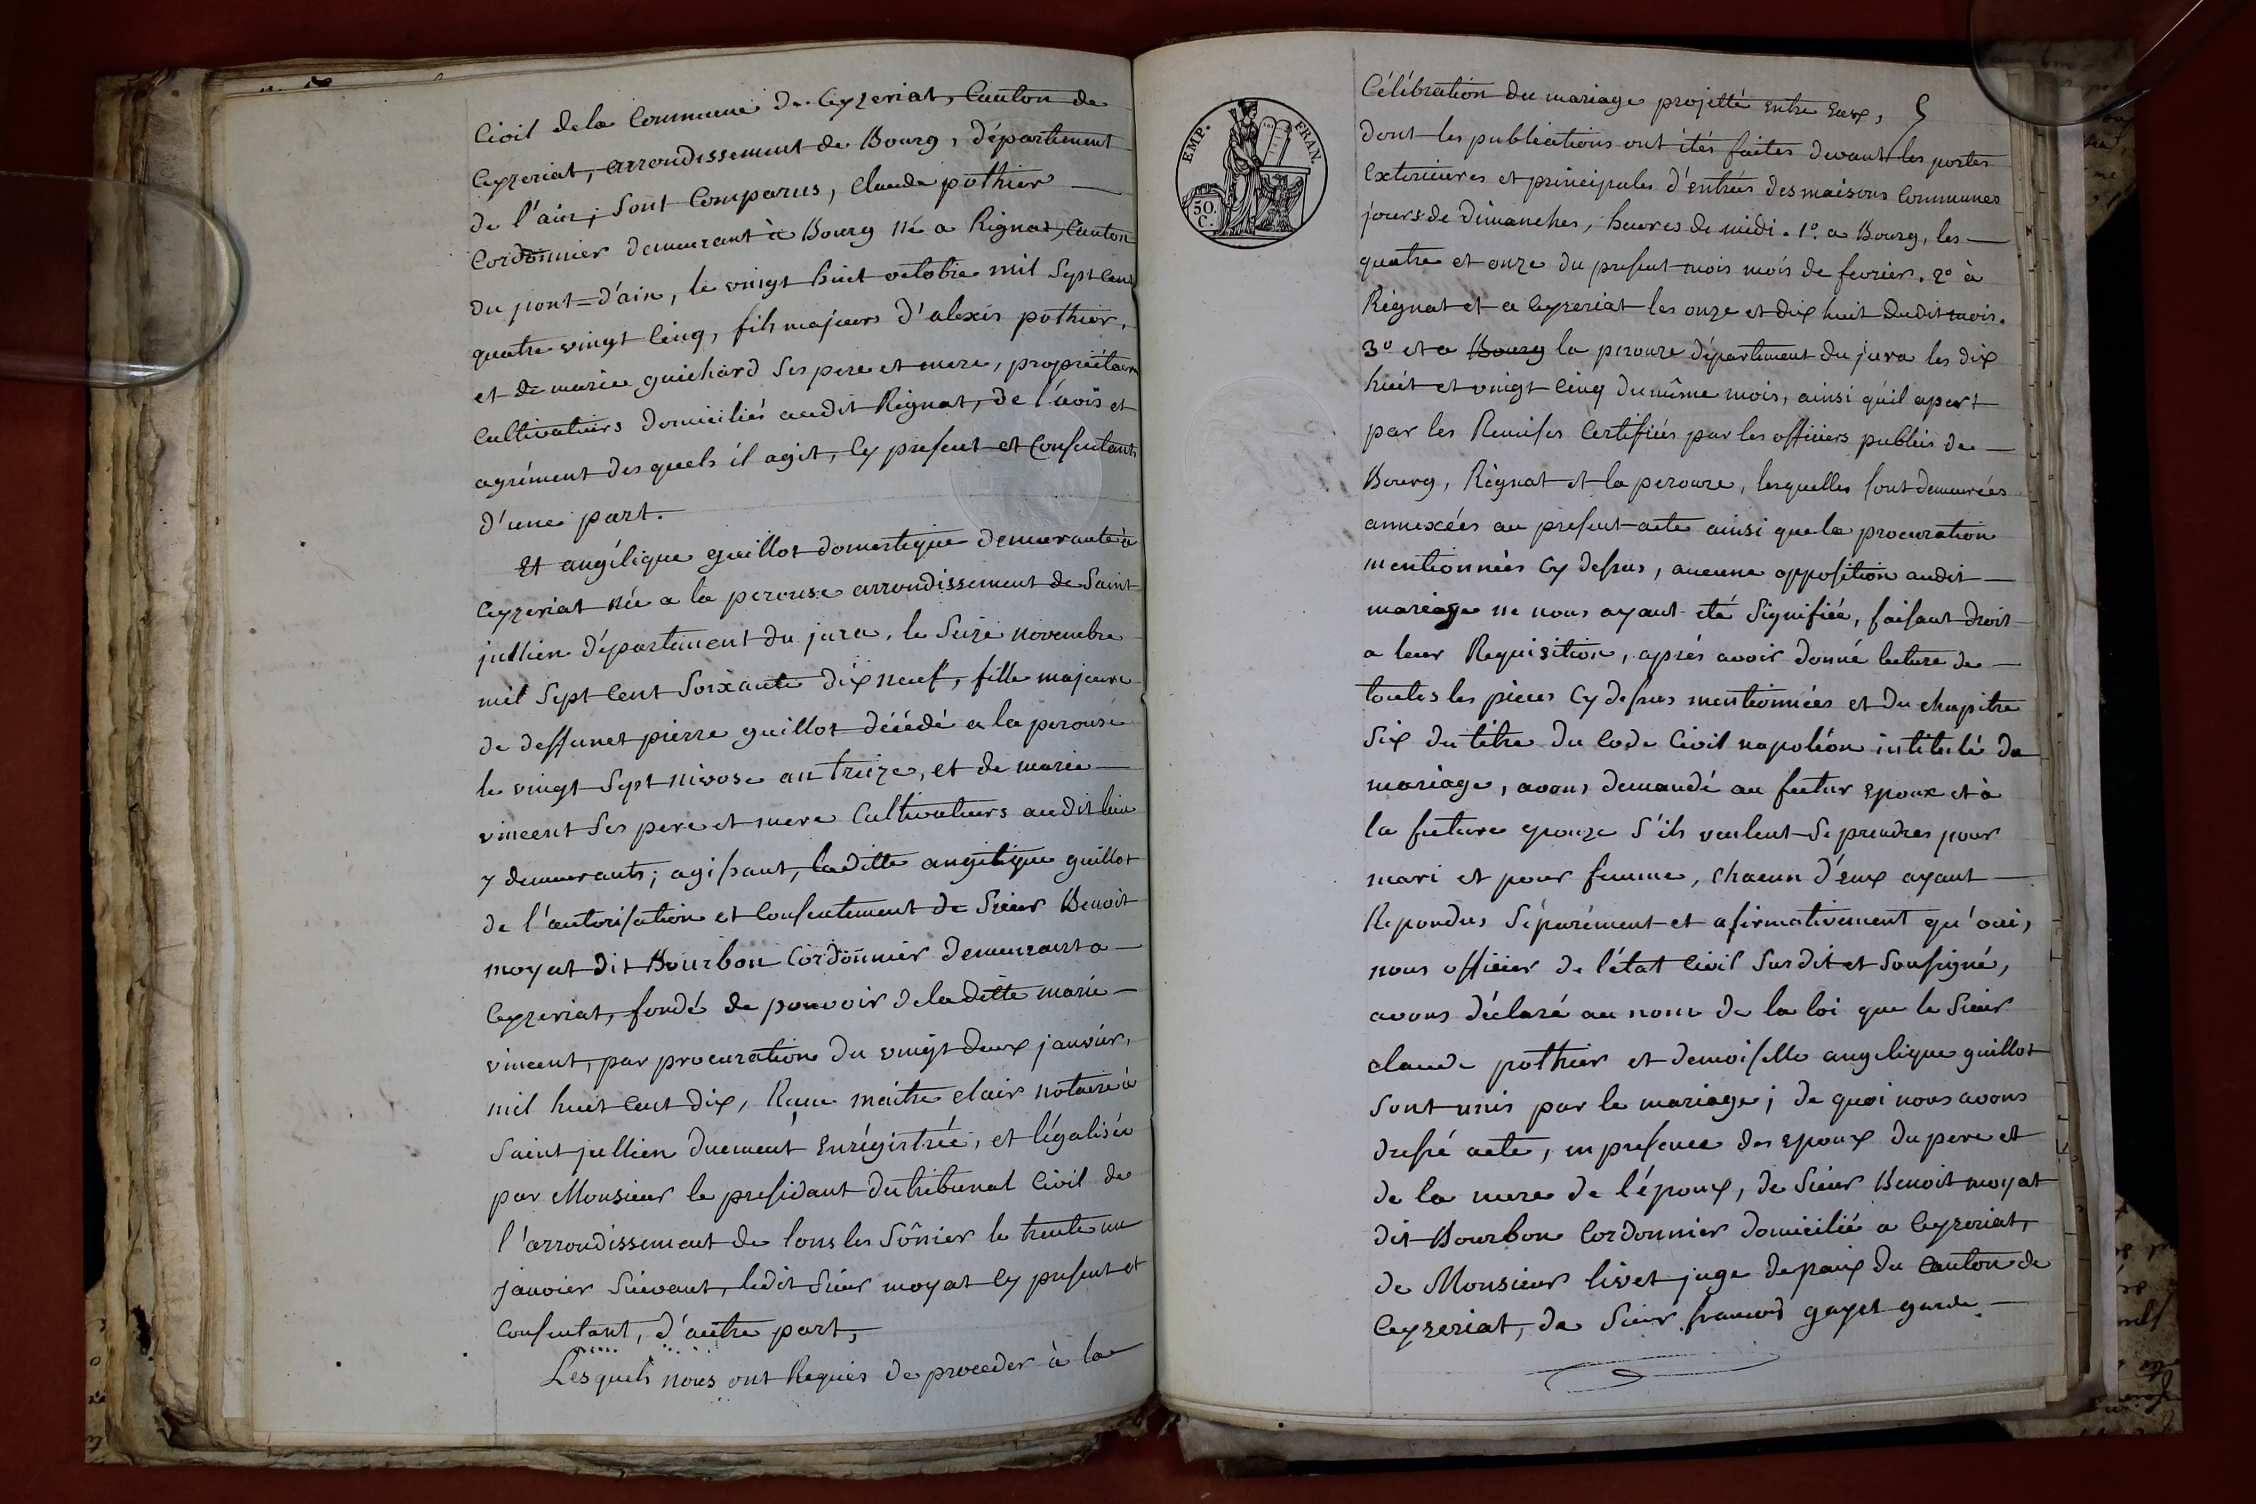 Civil de la Commune de Ceyzeriat, Canton de
Ceyzeriat, arrondissement de Bourg, département
de l'ain; sont Comparus, Claude pothier
Cordonnier demeurant à Bourg né a Rignat, Canton
du pont=d'ain, le vingt huit octobre mil sept cent
quatre vingt cinq, fils majeurs d'alexis pothier,
et de marie guichard ses pere et mere, propriétaires
Cultivateurs domiciliés audit Rignat, de l'avis et
agrément desquels il agit, Cy present et Consentants
d'une part.
Et angélique guillot domestique demeurante à
Ceyzeriat née a la perouse arrondissement de Saint
jullien département du jura, le seize novembre
mil sept cent soixante dix neuf, fille majeure
de deffunct pierre guillot décédé a la perouse
le vingt sept nivose an treize, et de marie
vincent ses pere et mere Cultivateurs audit lieu
y demeurants; agissant, laditte angélique guillot
de l'autorisation et Consentement de Sieur Benoit
moyat dit Bourbon Cordonnier demeurant a
Ceyzeriat, fondé de pouvoir de laditte marie
vincent, par procuration du vingt deux janvier,
mil huit cent dix, Reçue maitre clair notaire à
Saint jullien duement Enrégistrée, et légalisée
par Monsieur le presidant du tribunal Civil de
l'arrondissement de lons les Sônier le trente un
janvier suivant, ledit sieur moyat Cy present et
Consentant, d'autre part,
Lesquels nous ont Requis de proceder à la
EMP. FRAN.
50.
C.
5
Célébration du mariage projetté entre Eux,
dont les publications ont étés faites devant les portes
Exterieures et principales d'entrées des maisons Communes
jours de dimanches, heures de midi. 1º. a Bourg, les
quatre et onze du present mois mois de fevrier. 2º à
Rignat et a Ceyzeriat les onze et dix huit dudit mois.
3º et a Bourg la perouze département du jura les dix
huit et vingt cinq du même mois, ainsi qu'il apert
par les Remises Certifiées par les officiers publics de
Bourg, Rignat et la perouze, lesquelles sont demeurées
annexées au present acte ainsi que la procuration
mentionnées Cy dessus, aucune opposition audit
mariage ne nous ayant eté signifiée, faisant droit
a leur Requisition, aprés avoir donné lecture de
toutes les pieces Cy dessus mentionnées et du chapitre
Six du titre du Code Civil napoléon intitulé du
mariage, avons demandé au futur Epoux et à
la future epouze s'ils veulent se prendres pour
mari et pour femme, chacun d'eux ayant
Repondus séparément et afirmativement qu'oui,
nous officier de l'état Civil surdit et soussigné,
avons déclaré au nom de la loi que le sieur
claude pothier et demoiselle angelique guillot
sont unis par le mariage; de quoi nous avons
dressé acte, en presence des epoux du pere et
de la mere de l'époux, de sieur Benoit moyat
dit Bourbon Cordonnier domicilié a Ceyzeriat,
de Monsieur livet juge de paix du Canton de
Ceyzeriat, de sieur francois gayet garde